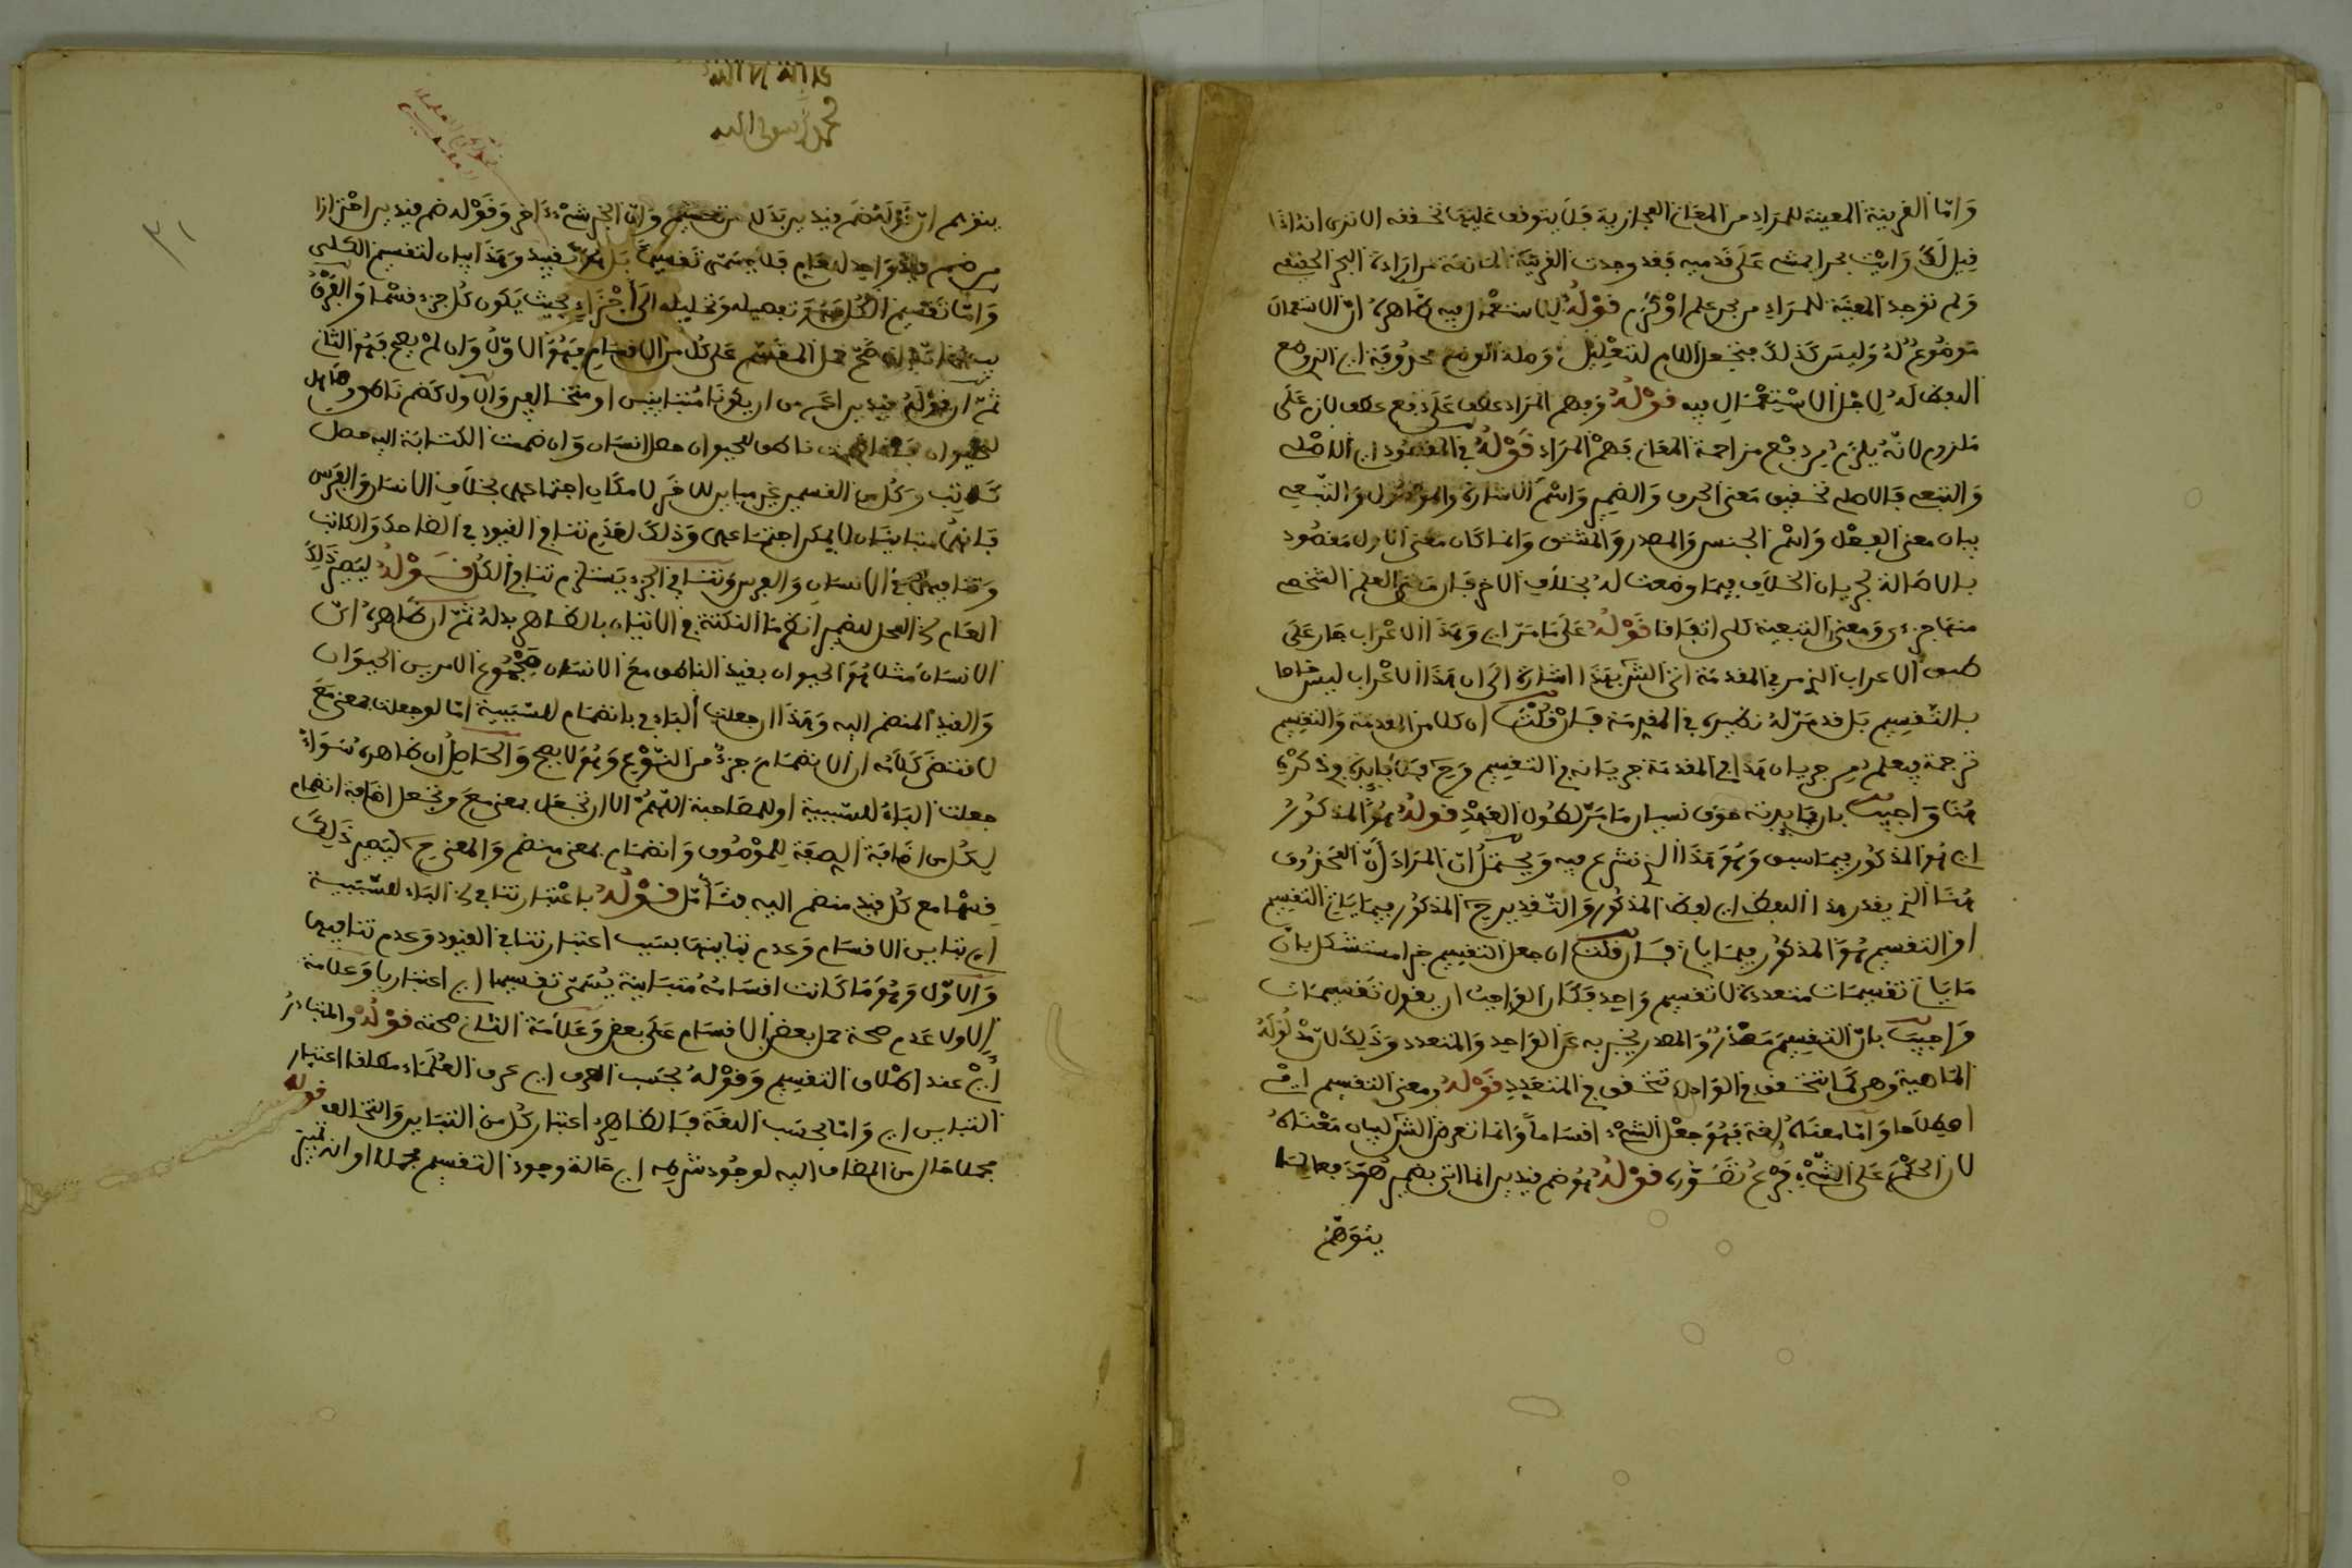 واما القرينة المعينة للمراد من المعاني المجازية فلا يتوقف عليها تحققه الا ترى انه اذا
قيل لك رايت بحرا يمشى على قدميه فقد وجدت القرينة المانعة من ارادة البحر الحقيقي
ولم توجد المعينة للمراد من بحر علم او كرم قوله لاستعمال فيه ظاهره ان الاستعمال
موضوع له وليس كذلك فتجعل اللام للتعليل وصلة الوضع محذوفة اي الذي وضع
اللفظ له لاجل الاستعمال فيه قوله وفهم المراد عطف على دفع عطف لازم على
ملزوم لانه يلزم من دفع مزاحمة المعاني فهم المراد قوله في المقصود اي الاصلي
والتبعي فالاصلي تحقيق معنى الحرف والضمير واسم الاشارة والموصول والتبعي
بيان معنى الفعل واسم الجنس والمصدر والمشتق وانما كان معنى الاول مقصود
بالاصالة لجريان الخلاف فيما وضعت له بخلاف الاخر فان معنى العلم الشخصي
منها جزءي ومعنى التبعية كلي اتفاقا قوله على ما مر اي وهذا الاعراب جار على
طبق الاعراب الذي مر في المقدمة اتى الش بهذا اشارة الى ان هذا الاعراب ليس خاصا
بالتقسيم بل قد مر له نظيره في المقدمة فان قلت ان كلا من المقدمة والتقسيم
ترجمة فيعلم من جريان هذا في المقدمة جريانه في التقسيم وح فما فايدة ذكره
هنا واجيب بان فايدته خوف نسيان ما مر لطول العهد قوله هو المذكور
اي هو المذكور فيما سبق وهو هذا الذي نشرع فيه ويحتمل ان المراد ان المحذوف
هنا الذي يقدر هذا اللفظ اي لفظ المذكور والتقدير ح المذكور فيما ياتي التقسيم
او التقسيم هو المذكور فيما ياتي فان قلت ان جعل التقسيم خبرا مستشكل بان
ما ياتي تقسيمات متعددة لا تقسيم واحد فكان الواجب ان يقول تقسيمات
واجيب بان التقسيم مصدر والمصدر يخبر به عن الواحد والمتعدد وذلك لان مدلوله
الماهية وهي كما تتحقق في الواحد تتحقق في المتعدد قوله ومعنى التقسيم اي
اصطلاحا واما معناه لغة فهو جعل الشيء اقساما وانما تعرض الش لبيان معناه
لان الحكم على الشيء فرع تصوره قوله هو ضم قيدين انما اتى بضمير هو دفعا لما
يتوهم
لا اله الا الله
محمد رسول الله
يتوهم ان قوله ضم قيدين بدل من تقسيم وان الخبر شيء اخر وقوله ضم قيدين احترازا
من ضم قيد واحد لعام فلا يسمى تقسيما بل هو تقييد وهذا بيان لتقسيم الكلي
واما تقسيم الكل فهو تفصيله وتحليله الى اجزاء بحيث يكون كل جزء قسما والفرق
بينهما انه ان صح حمل المقسم على كل من الاقسام فهو الاول وان لم يصح فهو الثاني
ثم ان قوله قيدين اعم من ان يكونا متباينين او متخالفين والاول كضم ناطق وصاهل
للحيوان فاذا ضمت ناطق للحيوان حصل انسان وان ضمت الكتابة اليه حصل
كاتب وكل من القسمين غير مباين للاخر لامكان اجتماعهما بخلاف الانسان والفرس
فانهما متباينان لا يمكن اجتماعهما وذلك لعدم تنافي القيود في الضاحك والكاتب
وتنافيهما في الانسان والفرس وتنافي الجزء يستلزم تنافي الكل قوله ليصير ذلك
العام في المحل للضمير انظر ما النكتة في الاتيان بالظاهر بدله ثم ان ظاهره ان
الانسان مثلا هو الحيوان بقيد الناطق مع الانسان مجموع الامرين الحيوان
والقيد المنضم اليه وهذا ان جعلت الباء في بانضمام للسببية اما لو جعلت بمعنى مع
لاقتضى كلامه ان الانضمام جزء من النوع وهو لا يصح والحاصل ان ظاهره سواء
جعلت الباء للسببية او للمصاحبة اللهم الا ان تجعل بمعنى مع وتجعل اضافة انضمام
لكل من اضافة الصفة للموصوف وانضمام بمعنى منضم والمعنى ح ليصير ذلك
قسما مع كل قيد منضم اليه فتامل قوله باعتبار تنافي الباء للسببية
اي تباين الاقسام وعدم تباينها بسبب اعتبار تنافي القيود وعدم تنافيها
والاول وهو ما كانت اقسامه متباينة يسمى تقسيما اي اعتباريا وعلامة
الاول عدم صحة حمل بعض الاقسام على بعض وعلامة الثاني صحته قوله والمتبادر
اي عند اطلاق التقسيم وقوله بحسب العرف اي عرف العلماء مطلقا اعتبار
التباين اي واما بحسب اللغة فالظاهر اعتبار كل من التباين والتخالف قوله
مجملا حال من المضاف اليه لوجود شرطه اي حالة وجود التقسيم مجملا او انه تمييز
٣١